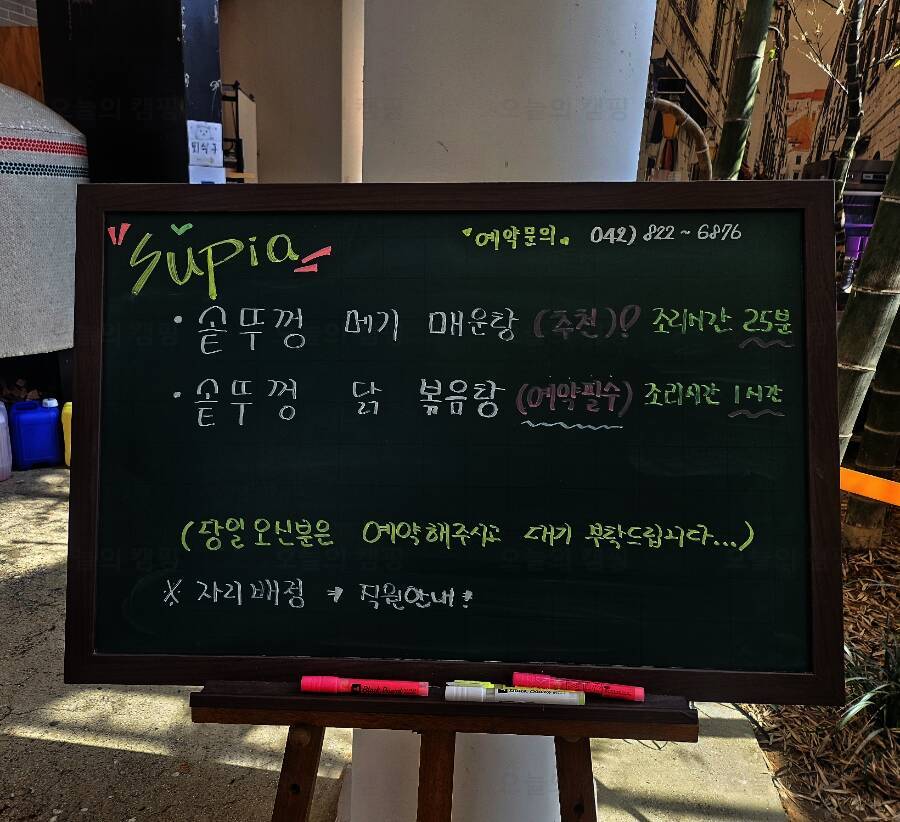 "Supia" "예약문의" 042) 822~6876
• 솥뚜껑 메기 매운탕 (추천)! 조리시간 25분
• 솥뚜껑 닭 볶음탕 (예약필수) 조리시간 1시간
(당일 오신분은 예약해주시고 대기 부탁드립니다...)
※ 자리배정 → 직원안내!